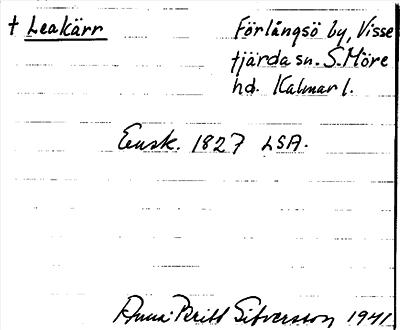 † Leakärr Förlångsö by, Visse
fjärda sn. S. Möre
hd. Kalmar l.
Ensk. 1827 LSA.
Anna Britt Sifversson 1941